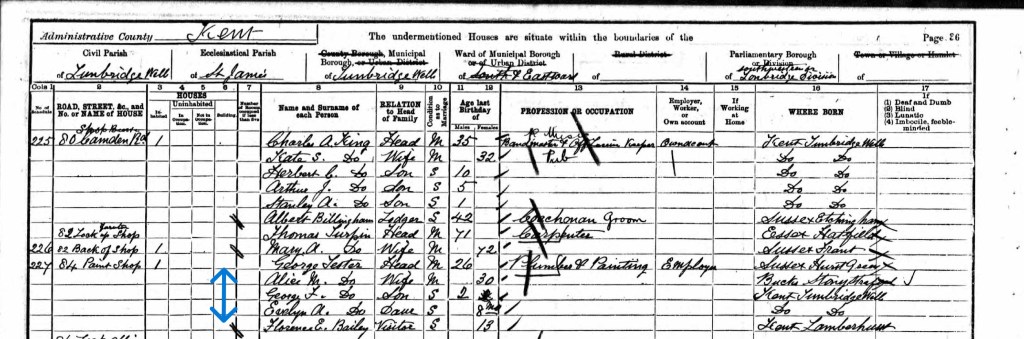 Administrative County Kent The undermentioned Houses are situate within the boundaries of the Page, 26
Civil Parish Ecclesiastical Parish County Borough, Municipal Borough, or Urban District Ward of Municipal Borough or of Urban District Rural District Parliamentary Borough or Division Town or Village or Hamlet
of Tunbridge Wells of St James of Tunbridge Wells of South & East ward of of Tonbridge Division of
Cols 1 2 3 4 5 6 7 8 9 10 11 12 13 14 15 16 17
No. of Schedule ROAD, STREET, &c., and No. or NAME of HOUSE HOUSES Inhabited Uninhabited In Occupation Not in Occupation Building Name and Surname of each Person RELATION to Head of Family Condition as to Marriage Age last Birthday of Males Females PROFESSION OR OCCUPATION Employer, Worker, or Own account If Working at Home WHERE BORN If (1) Deaf and Dumb (2) Blind (3) Lunatic (4) Imbecile, feeble-minded
225 80 Camden Rd 1 Charles A. King Head M 35 Bandmaster & Keeper Kent Tunbridge Wells
Kate S. Do Wife M 32 Pub Do Do
Herbert C. Do Son S 10 Do Do
Arthur J. Do Son S 5 Do Do
Stanley A. Do Son S 1 Do Do
Albert Billingham Lodger S 42 Coachman Groom Sussex Etchingham
82 Lock up Shop Thomas Turpin Head M 71 Carpenter Essex Hatfield
226 82 Back of Shop 1 Mary A. Do Wife M 72 Sussex Frant
227 84 Paint Shop 1 George Lester Head M 26 Plumber & Painting Employer Sussex Hurst Green
Alice M. Do Wife M 30 Bucks Stony Stratford
George F. Do Son S 2 Kent Tunbridge Wells
Evelyn A. Do Daur S 8mo Do Do
Florence E. Bailey Visitor S 13 Kent Lamberhurst